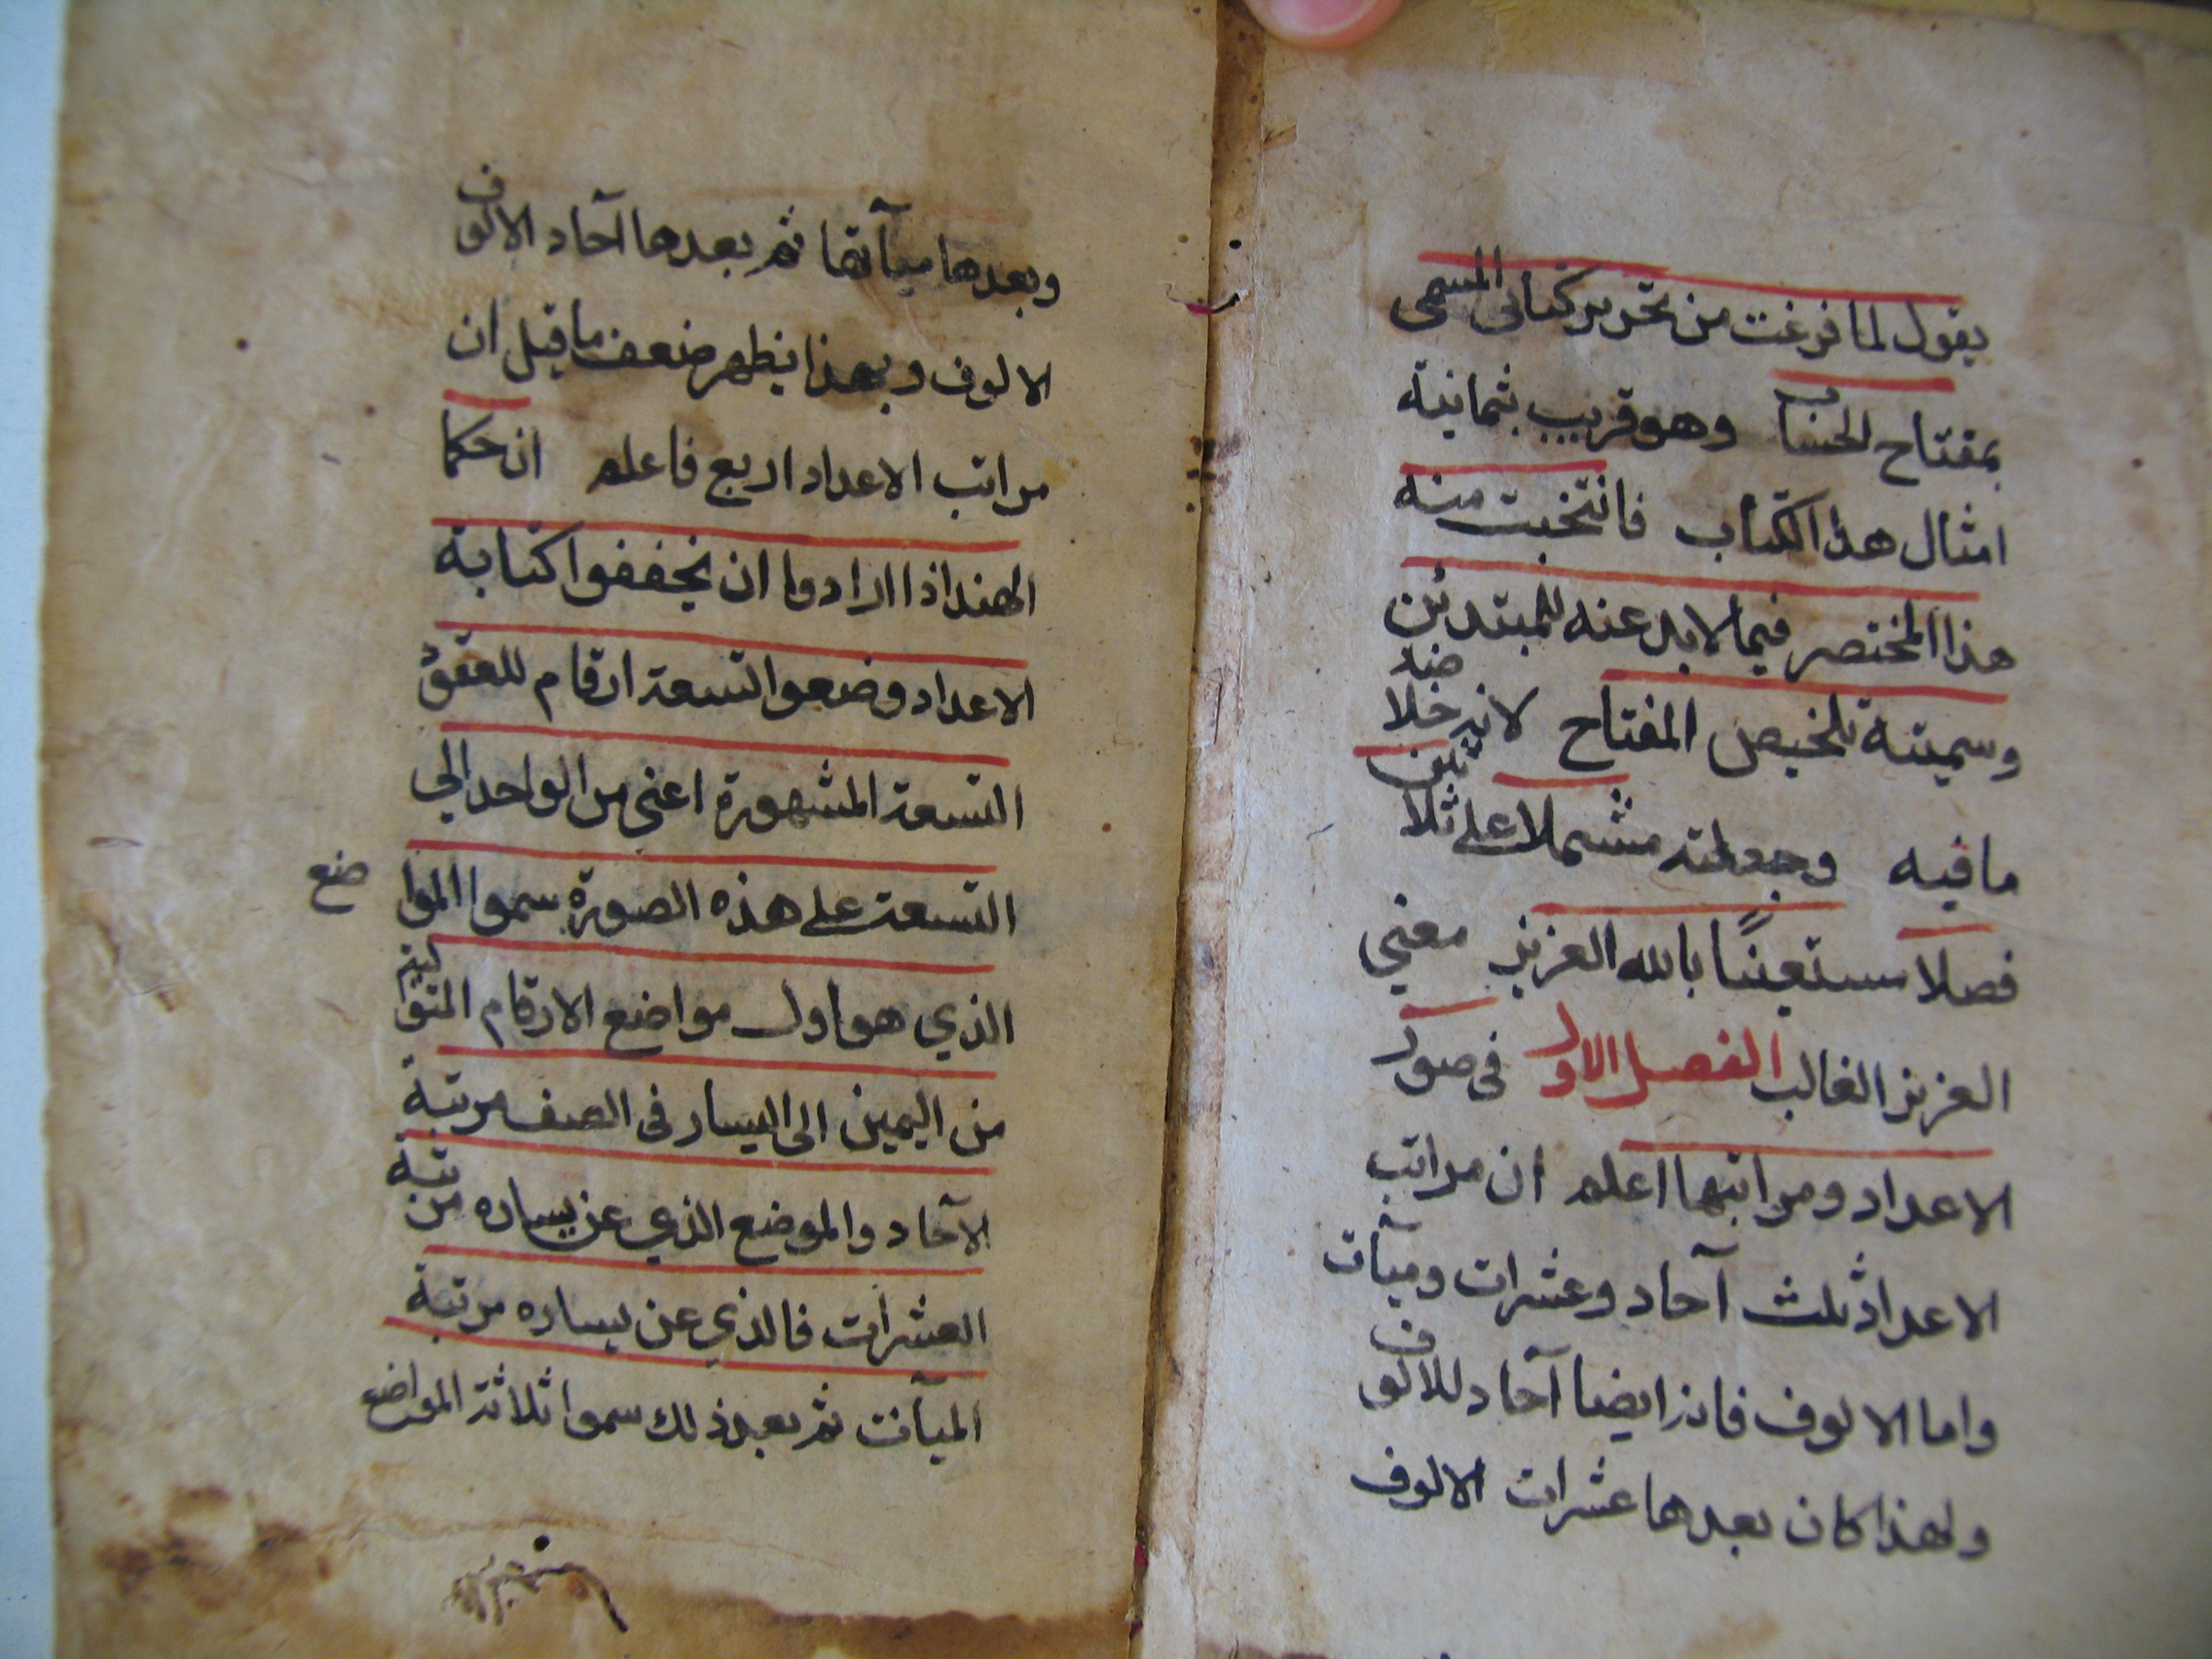 يقول لما فرغت من تحرير كتابي المسمى
بمفتاح الحساب وهو قريب بثمانية
امثال هذا الكتاب فانتخبت منه
هذا المختصر فيما لا بد عنه للمبتدئن
وسميته تلخيص المفتاح لانه خلاصة
ما فيه وجعلته مشملا على ثلاثين
فصلا مستعينًا بالله العزيز معني
العزيز الغالب الفصل الاول في صور
الاعداد ومراتبها اعلم ان مراتب
الاعداد ثلث آحاد وعشرات وميآت
واما الالوف فانه ايضا آحاد للالوف
ولهذا كان بعدها عشرات الالوف
وبعدها ميآتها ثم بعدها آحاد الالوف
الالوف وبهذا يظهر ضعف ما قيل ان
مراتب الاعداد اربع فاعلم ان حكما
الهند اذا ارادوا ان يخففوا كتابة
الاعداد وضعوا التسعة ارقام للعقود
التسعة المشهورة اعني من الواحد الي
التسعة على هذه الصورة سموا المواضع
الذي هو اول مواضع الارقام المتوالية
من اليمين الى اليسار في الصف مرتبة
الآحاد والموضع الذي عن يساره مرتبة
العشرات فالذي عن يساره مرتبة
الميآت ثم بعد ذلك سموا ثلاثة المواضع